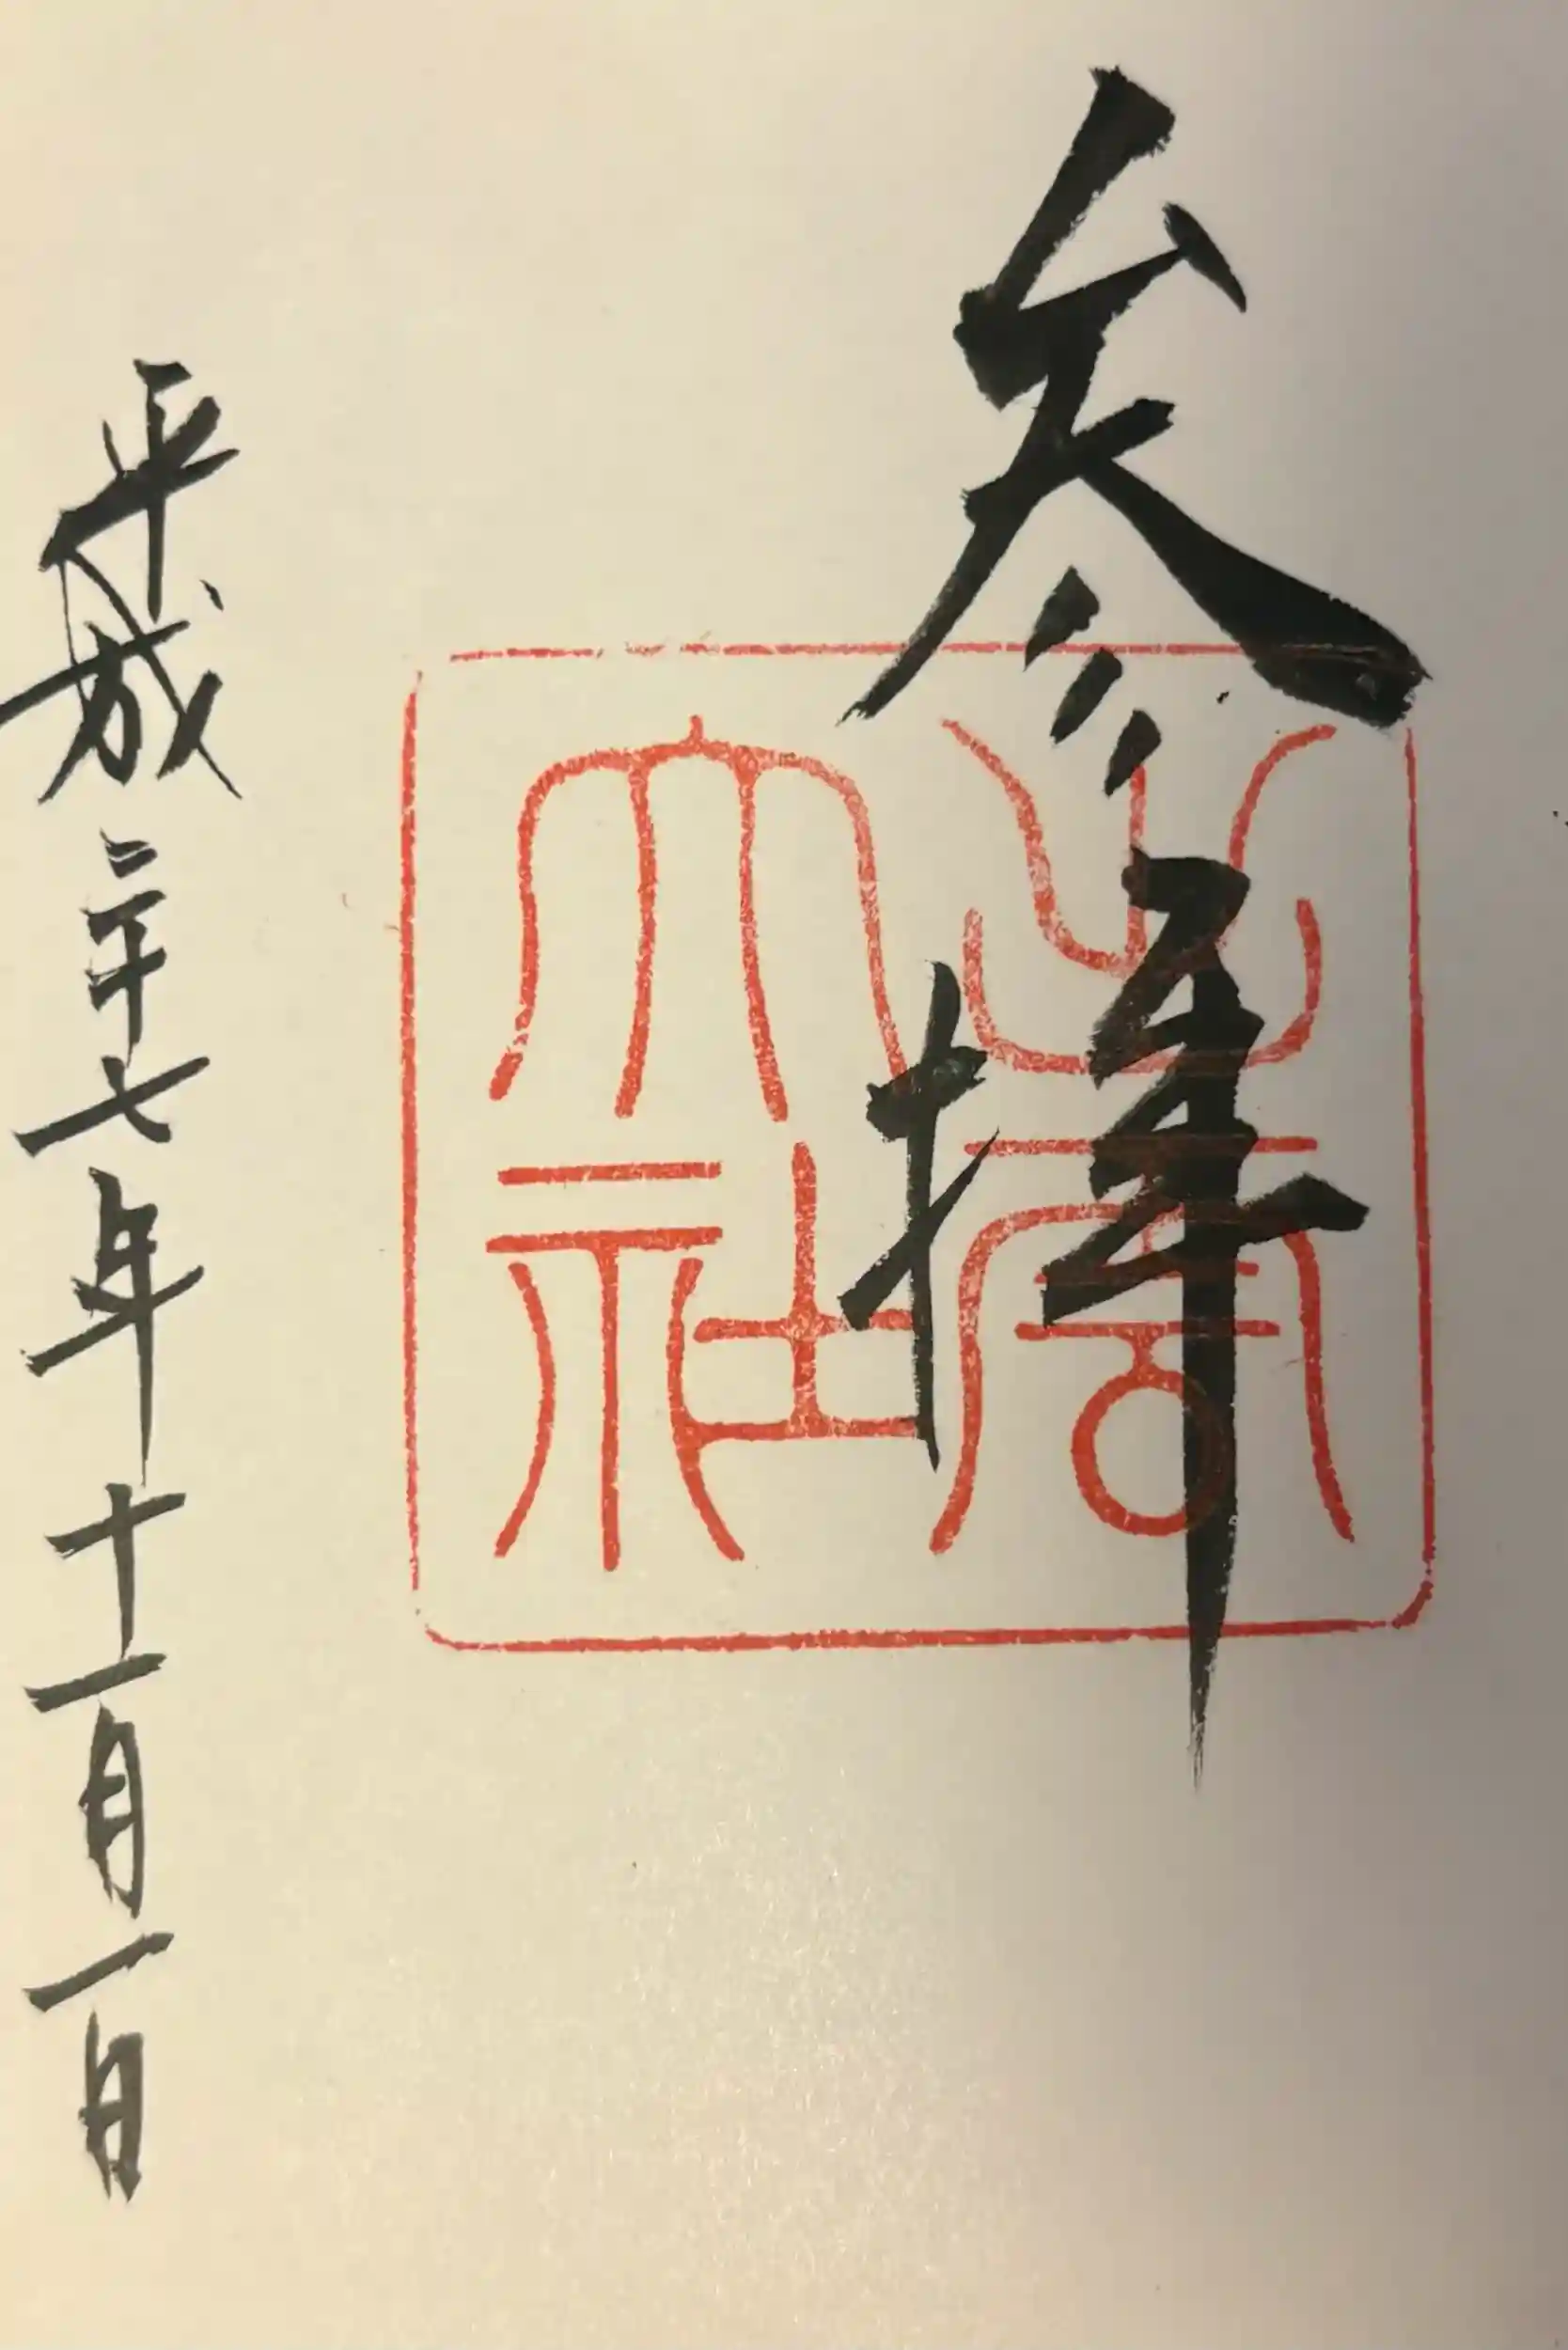 参拝
出雲
大社
平成二十七年十一月一日